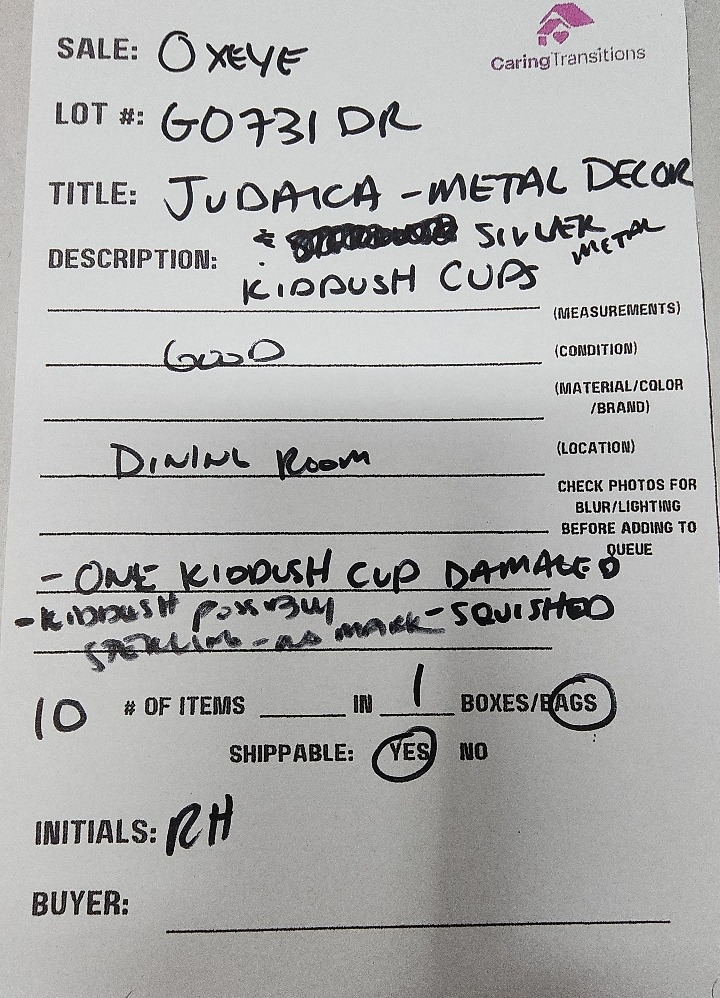 SALE: OXEYE
CaringTransitions
LOT #: GO731DR
TITLE: JUDAICA - METAL DECOR
& SILVER METAL
DESCRIPTION: KIDDUSH CUPS
(MEASUREMENTS)
GOOD (CONDITION)
(MATERIAL/COLOR
/BRAND)
DINING ROOM (LOCATION)
CHECK PHOTOS FOR
BLUR/LIGHTING
BEFORE ADDING TO
QUEUE
- ONE KIDDUSH CUP DAMAGED
- KIDDUSH POSSIBLY - SQUISHED
STERLING - NO MARK
10 # OF ITEMS IN 1 BOXES/BAGS
SHIPPABLE: YES NO
INITIALS: RH
BUYER: